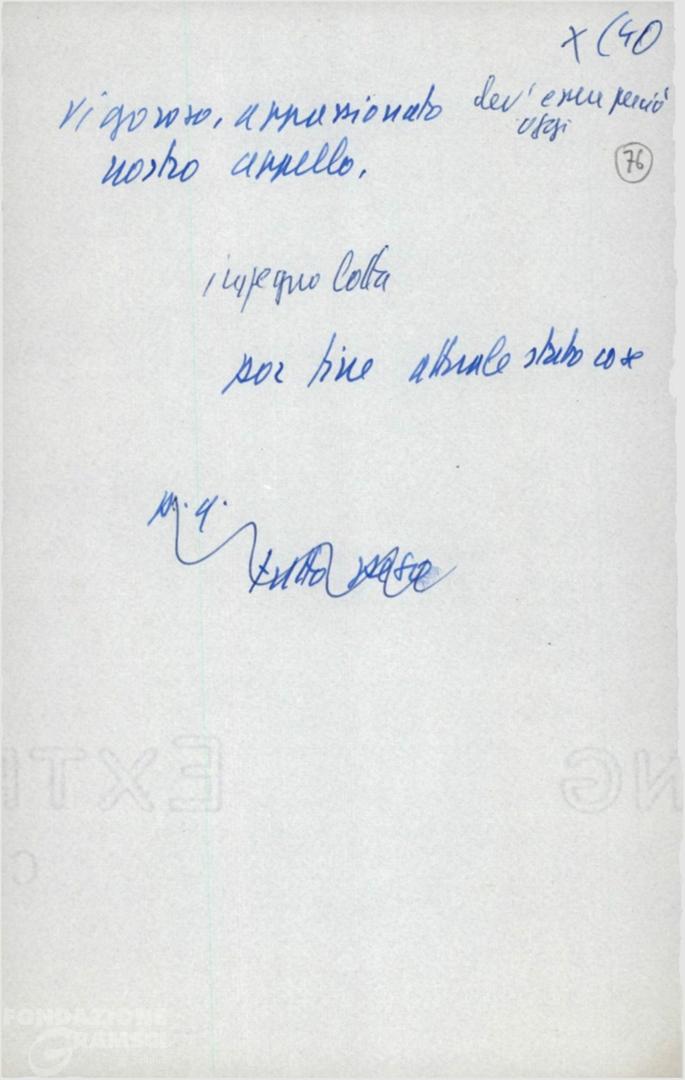 x (40
vigoroso, appassionato dev'essere perciò
oggi
nostro appello.
76
impegno lotta
por fine attuale stato cose
p. q.
tutto
EXT
NG
C
FONDAZIONE
GRAMSCI